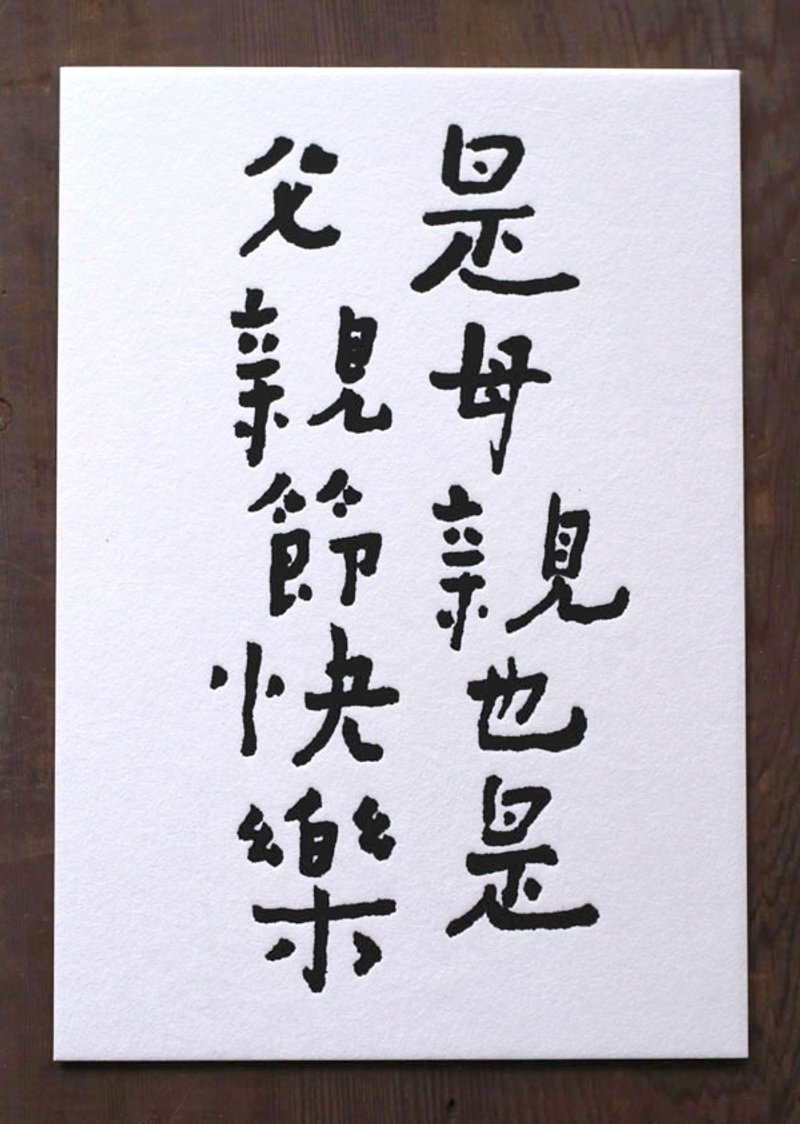 是母親也是
父親節快樂